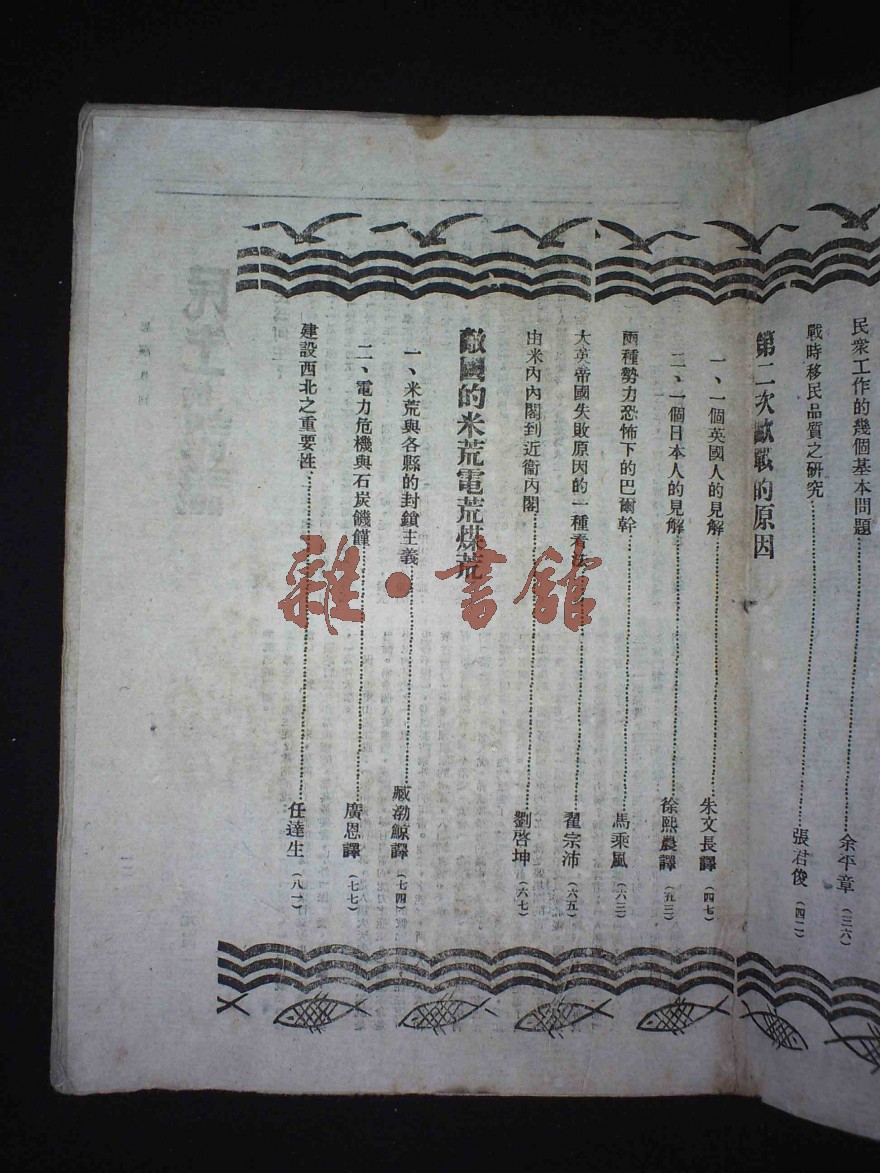 民衆工作的幾個基本問題……余平章（三六）
戰時移民品質之研究……張君俊（四二）
第二次歐戰的原因
一、一個英國人的見解……朱文長譯（四七）
二、一個日本人的見解……徐熙農譯（五三）
兩種勢力恐怖下的巴爾幹……馬乘風（六三）
大英帝國失敗原因的一種看法……翟宗沛（六五）
由米內內閣到近衞內閣……劉啓坤（六七）
敵國的米荒電荒煤荒
一、米荒與各縣的封鎖主義……臧渤鯨譯（七四）
二、電力危機與石炭饑饉……廣恩譯（七七）
建設西北之重要性……任達生（八一）
雜·書館